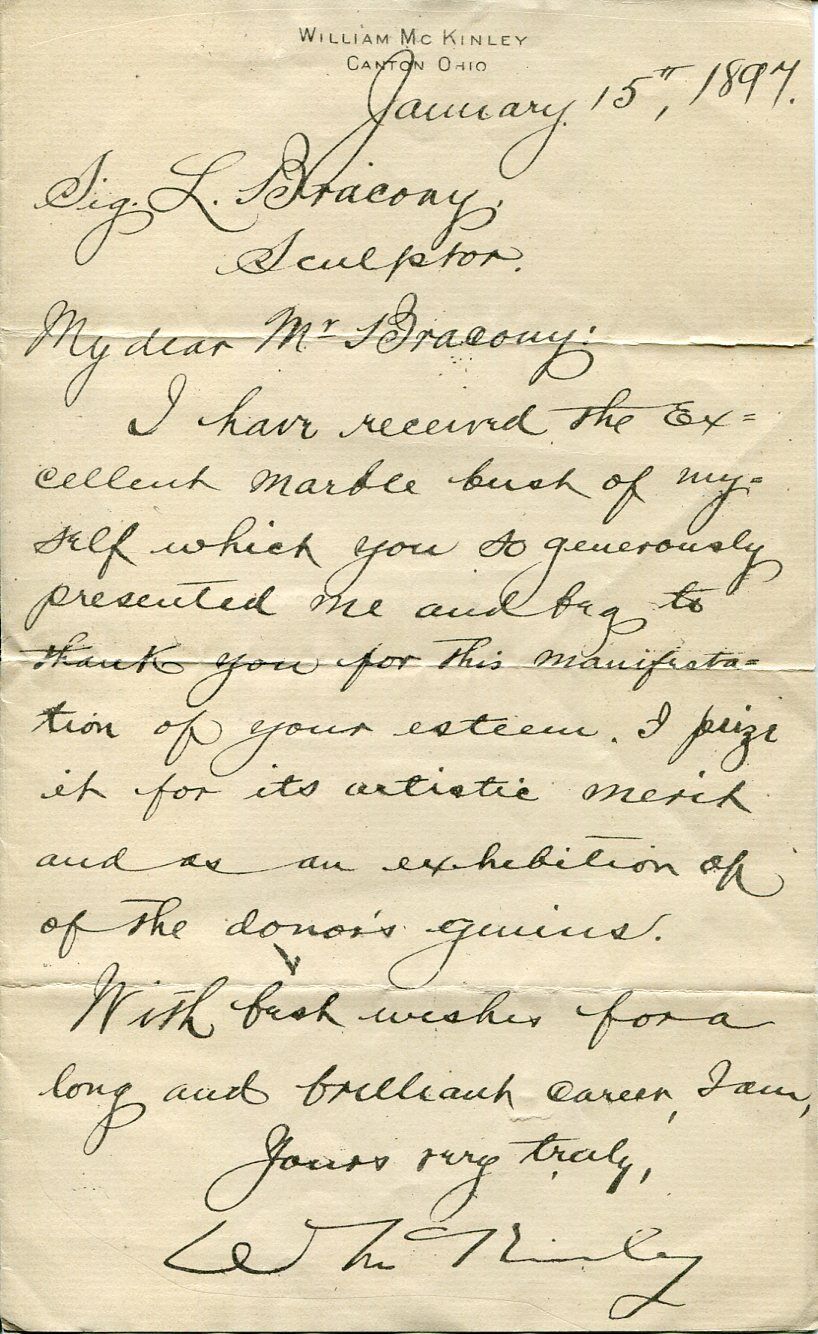 WILLIAM MC KINLEY
CANTON OHIO
January. 15", 1897.
Sig. L. Bracony,
Sculptor.
My dear Mr Bracony:
I have received the Ex=
cellent marble bust of my=
self which you so generously
presented me and beg to
thank you for this manifesta=
tion of your esteem. I prize
it for its artistic merit
and as an exhibition of
of the donor's genius.
With best wishes for a
long and brilliant career, I am,
Yours very truly,
W McKinley